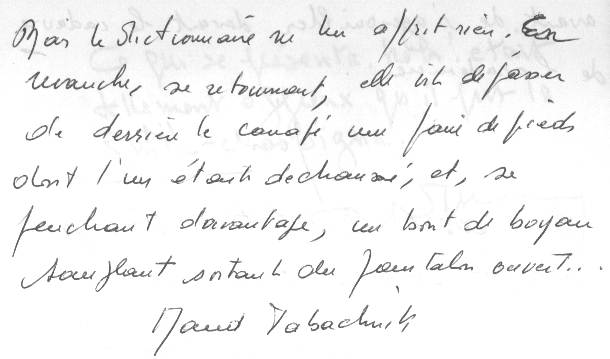 Mais le dictionnaire ne lui apprit rien. En
revanche, se retournant, elle vit dépasser
de derrière le canapé une paire de pieds
dont l'un était déchaussé, et, se
penchant davantage, un bout de boyau
sanglant sortant du pantalon ouvert...
Maud Tabachnik